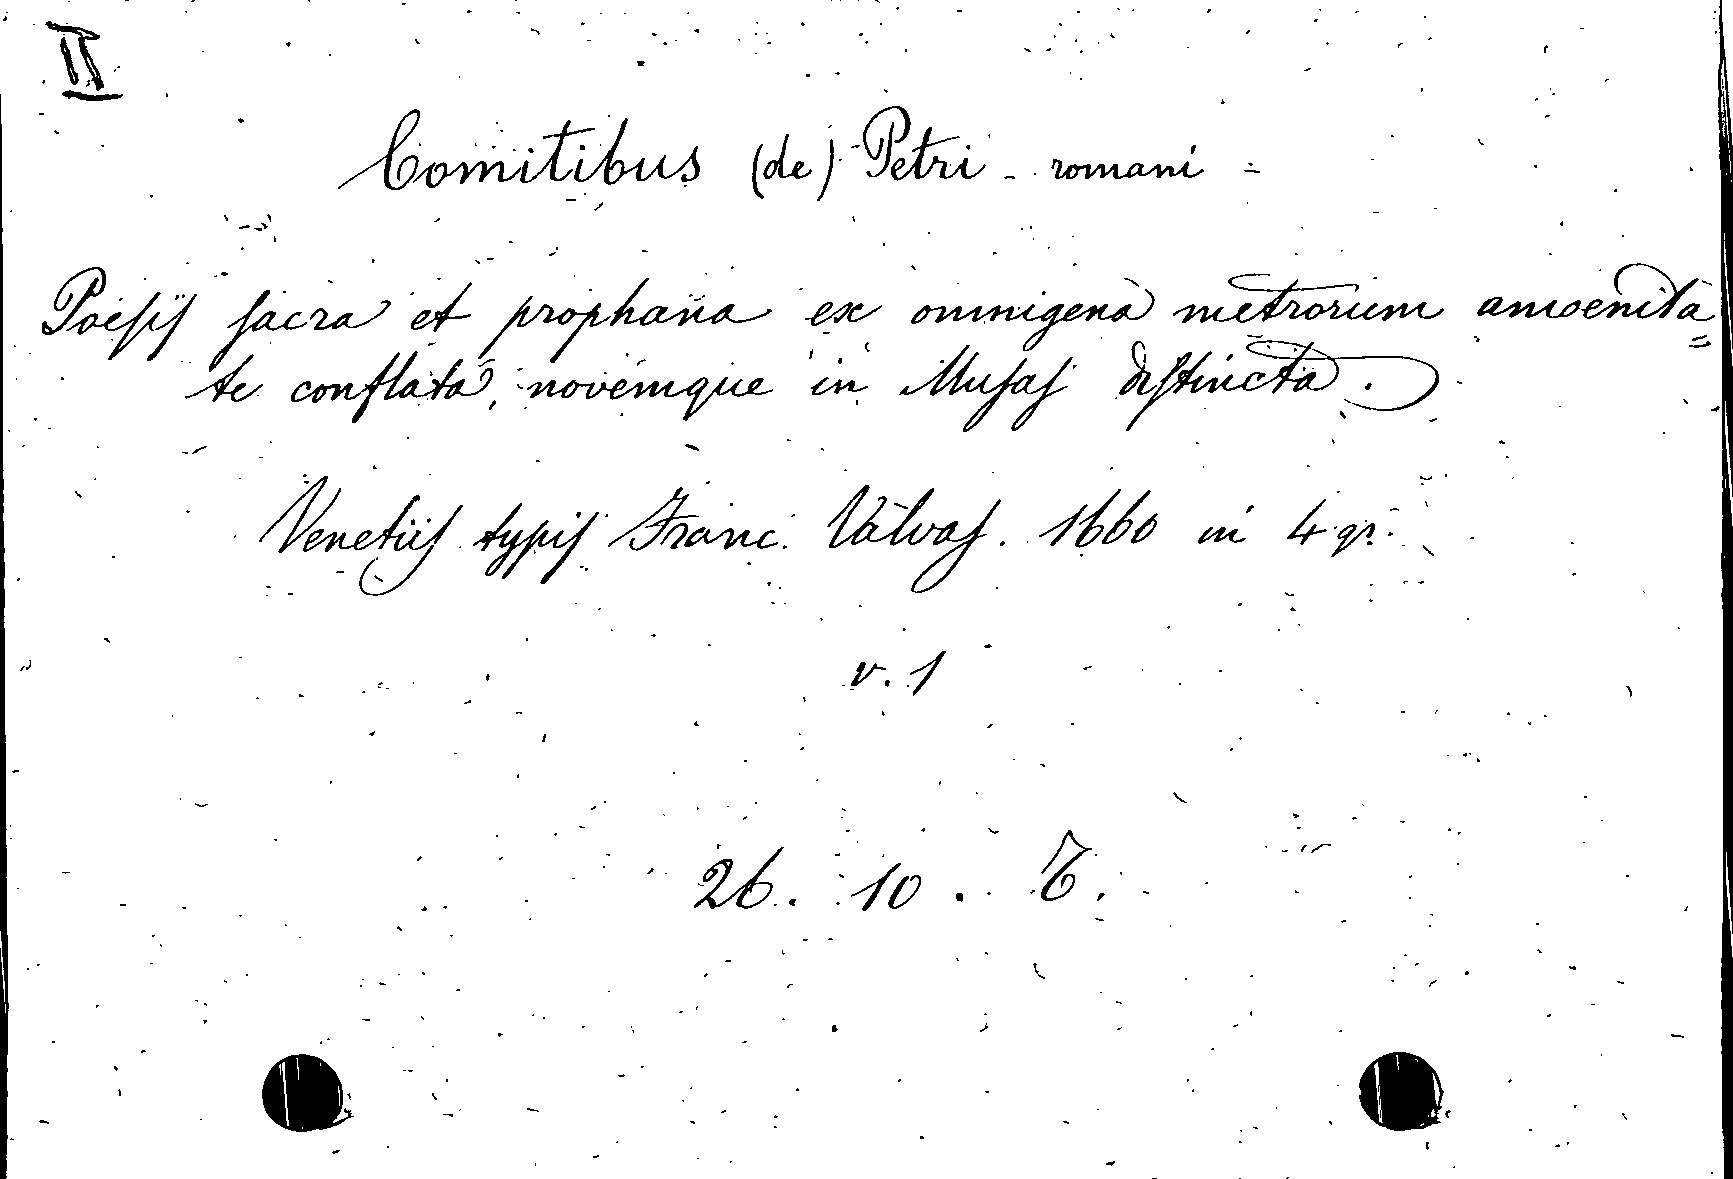 II
Comitibus (de) Petri - romani =
Poesis sacra et prophana ex omnigena metrorum amoenita=
te conflata, novemque in Musas distincta.
Venetiis typis Franc. Valvas. 1660 in 4 gr.
v. 1
26. 10.